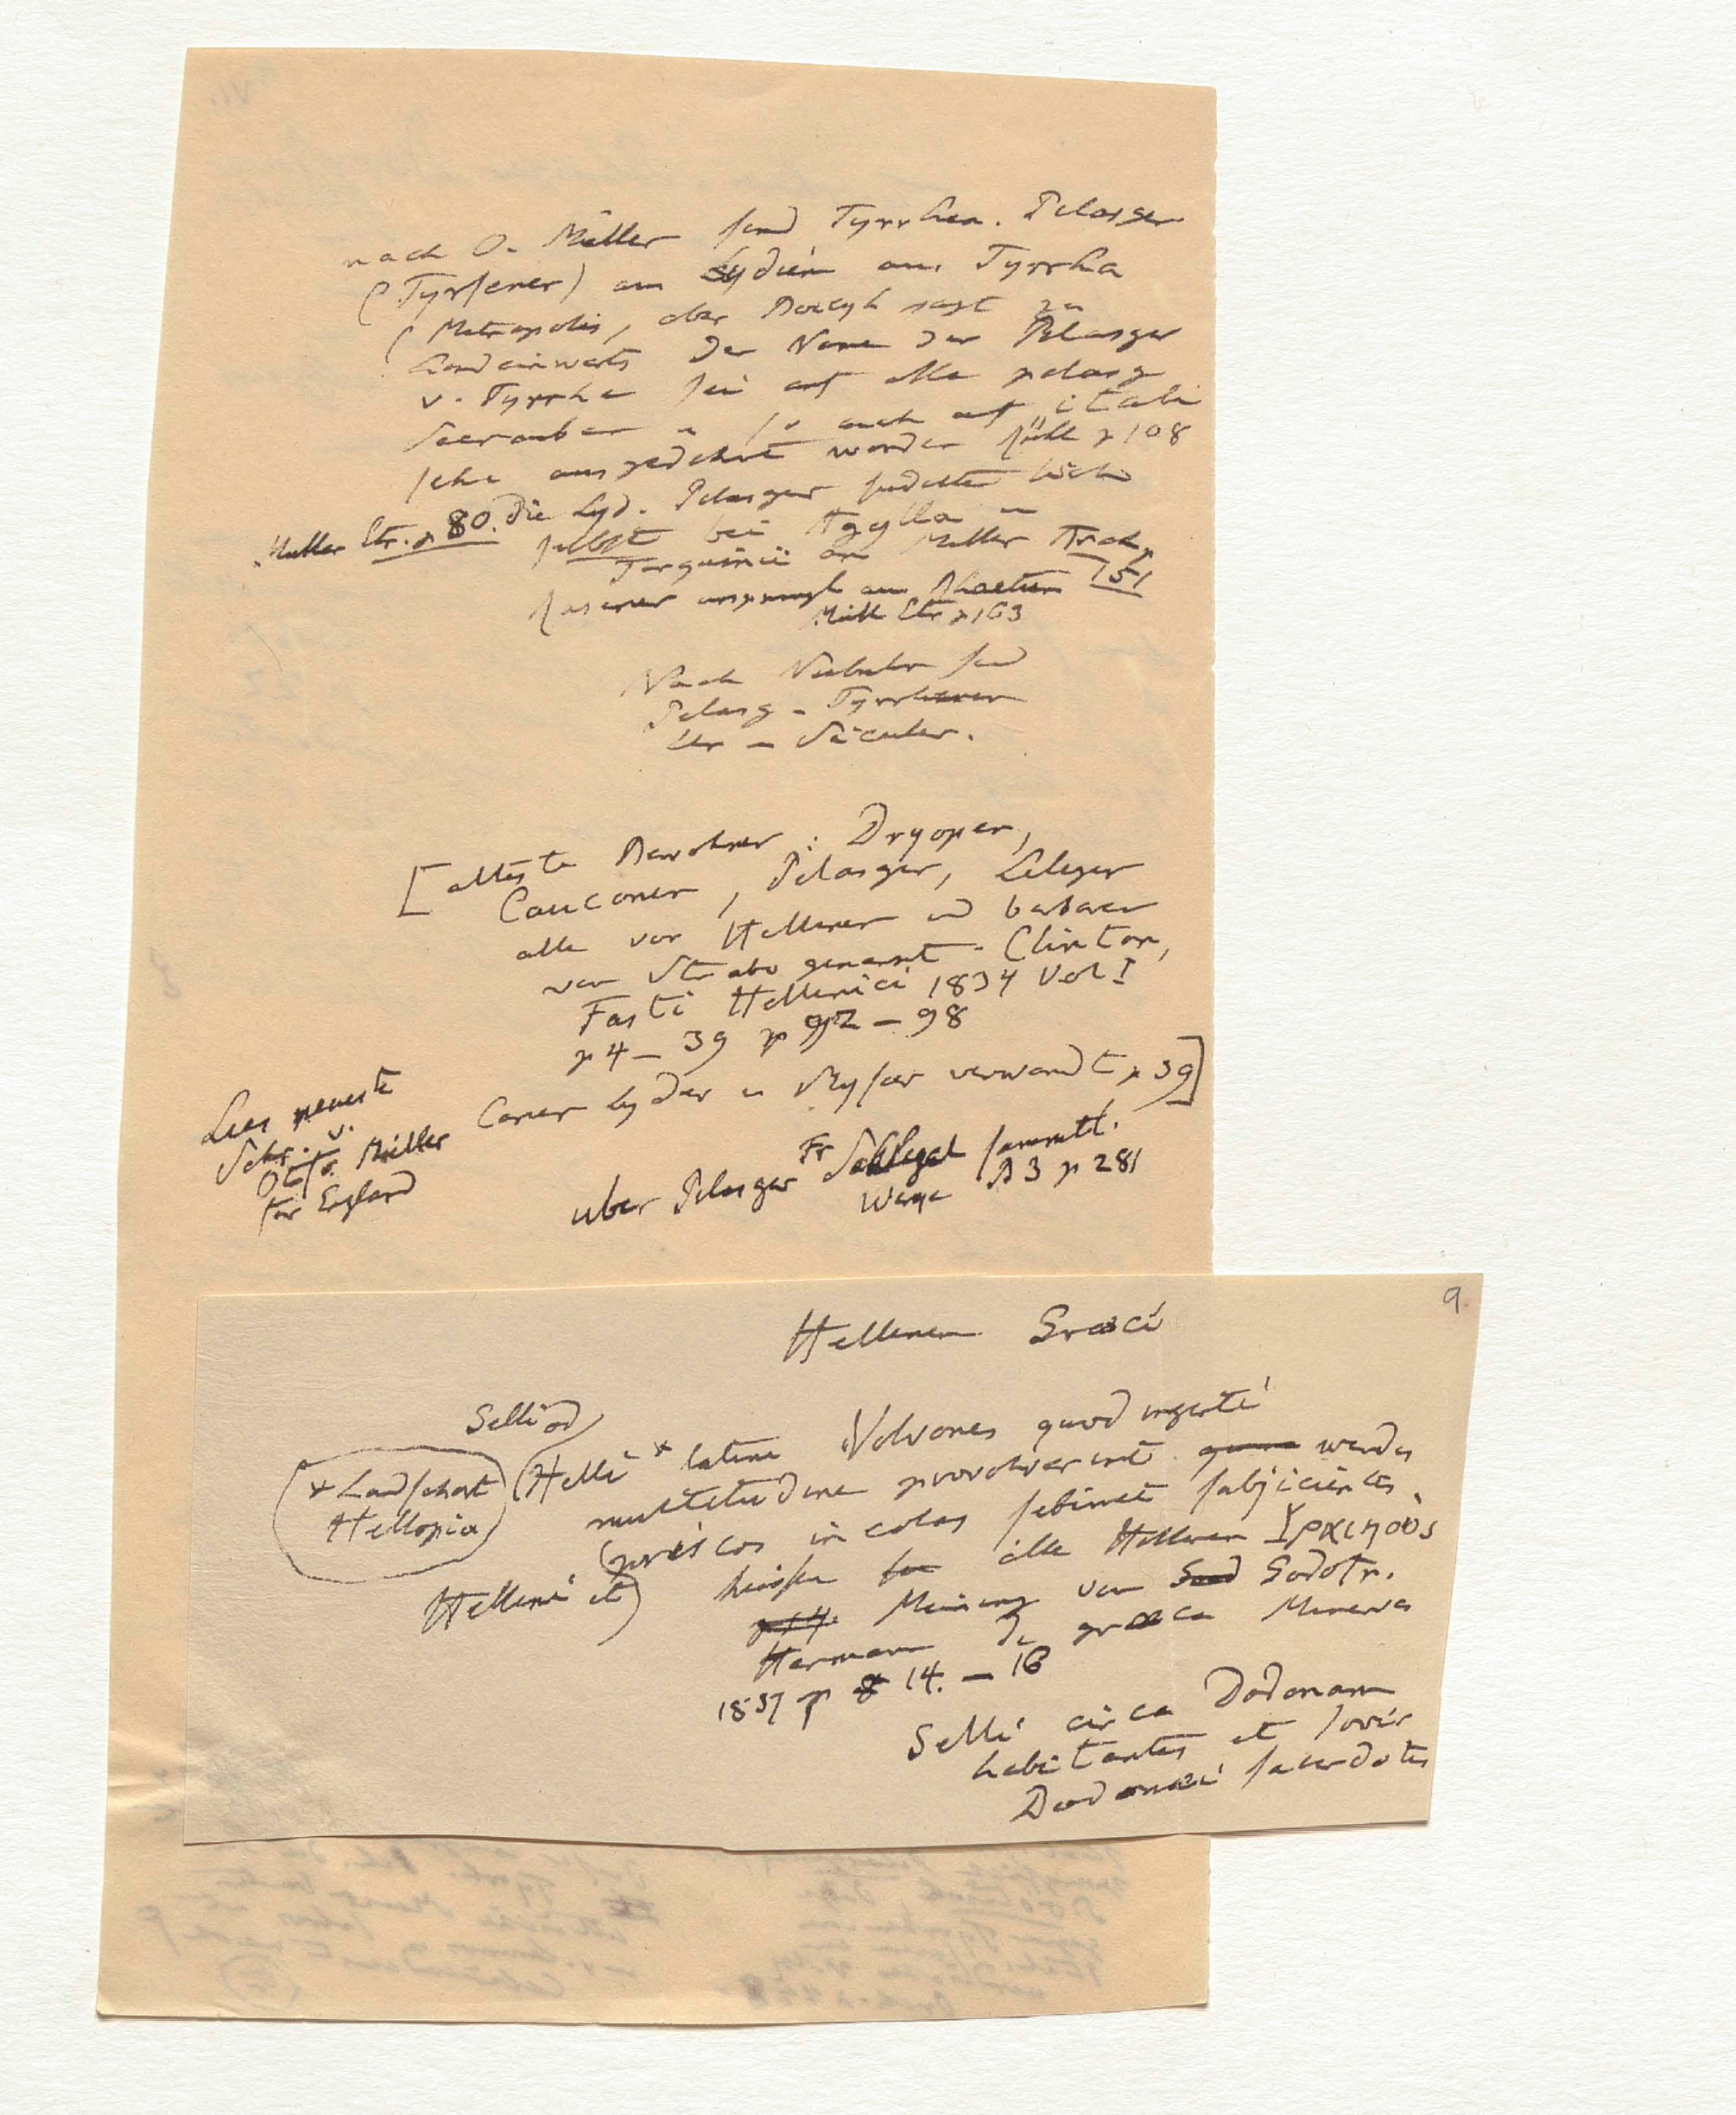 nach O. Müller sind Tyrrhen. Pelasger
(Tyrsener) aus Lydien aus Tyrrha
(Metropolis, aber Boeckh sagt zu
landeinwerts der Name der Pelasger
v. Tyrrha sei auf alle pelasg
Seerauber u so auch auf itali
sche ausgedehnt worden Müll p 108
Müller Etr. p 80. Die Lyd. Pelasger siedelten sich
selbst bei Agylla u
Tarquinii an Müller Arch p
151
Rasener ursprungl aus Rhaetien
Müll Etr p 163
Nach Niebuhr sind
Pelasg - Tyrrhener
Siculer.
[alteste Bewohner : Dryoper,
Cauconer, Pelasger, Leleger
alle vor Hellenen und barbaren
von Strabo genannt - Clinton,
Fasti Hellenici 1834 Vol I
p 4 - 39 p 92 - 98
Carer Lyder u Myser verwandt p 39]
Lies neueste
Schr. v.
Otfr. Müller
fur England
uber Pelasger Fr Schlegel sammtl.
Werke B 3 p 281
9.
Hellenen Graeci
Selli od
(Helli * latine Volvones quod ingenti
* Landschaft
Hellopia
multitudine provolverint
priscos incolas sibimet subjicientes.
Helleni et) heissen alle Hellenen Γραικους
Meinung von Godofr.
Hermann de graeca Minerva
1837 p 14. - 16
Selli circa Dodonam
habitantes et Jovis
Dodonaei sacerdotes